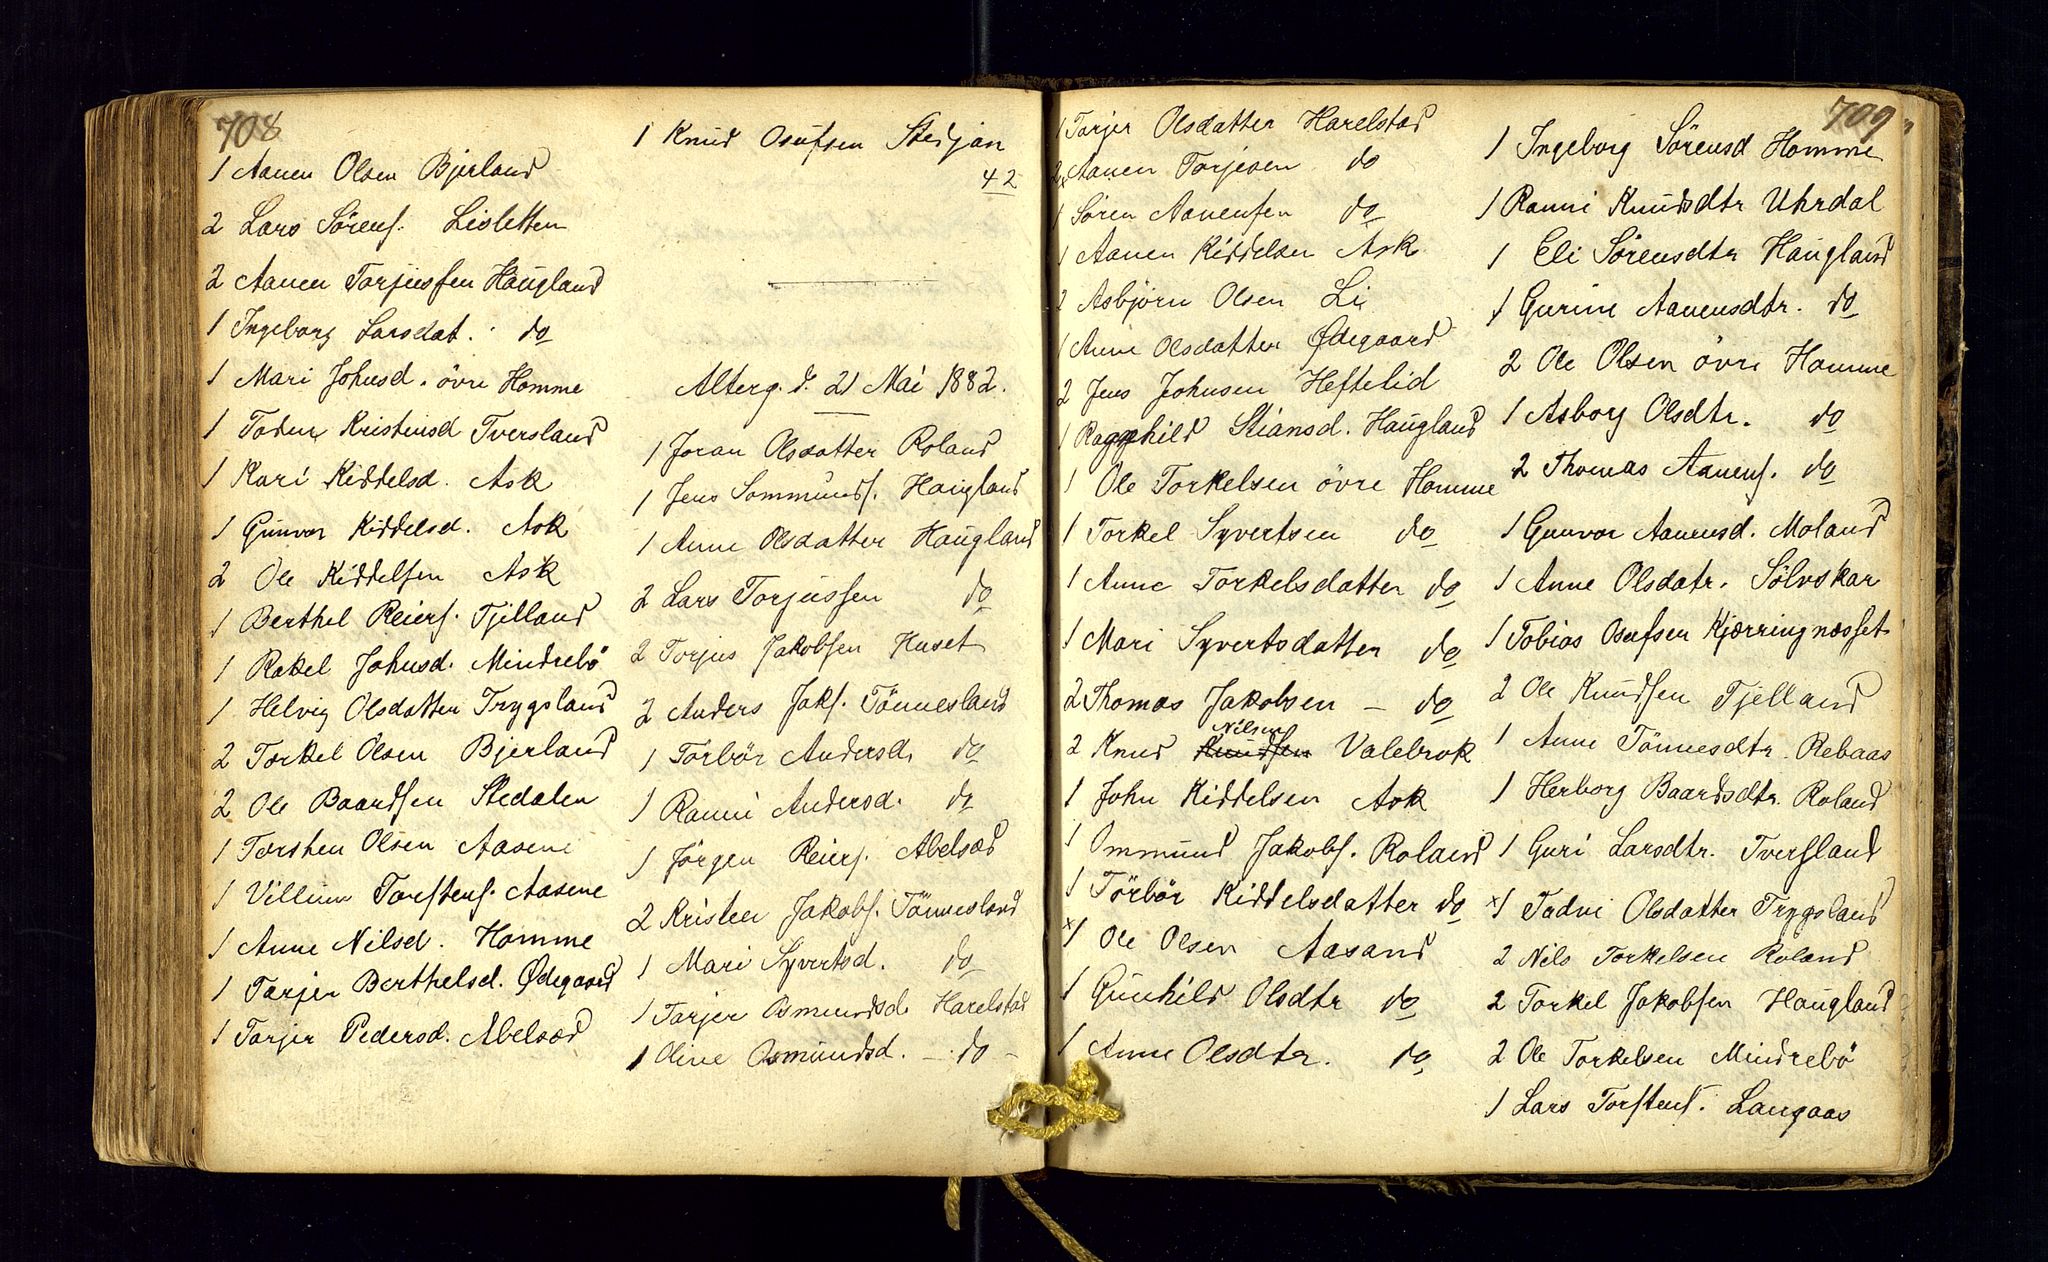 708
1 Aanen Olsen Bjerland
2 Lars Sörens. Lisletten
2 Aanen Tarjussen Haugland
1 Ingeborg Larsdat. do
1 Mari Johnsd. övre Homme
1 Todne Kristensd Tversland
1 Kari Kiddelsd. Ask
1 Gunvor Kiddelsd. Ask
2 Ole Kiddelsen Ask
1 Berthel Reiers. Tjelland
1 Rakel Johnsd. Mindrebö
1 Helvig Olsdatter Trygsland
2 Torkel Olsen Bjerland
2 Ole Baardsen Stedalen
1 Torsten Olsen Aasene
1 Villum Torstens. Aasene
1 Anne Nilsd. Homme
1 Tarjer Berthelsd. Ødegaard
1 Tarjer Pedersd. Abelsæd
1 Knud Osufsen Stedjan
42
Alterg. d. 21 Mai 1882.
1 Joran Olsdatter Roland
1 Jens Sommunds. Haugland
1 Anne Olsdatter Haugland
2 Lars Torjussen do
2 Torjus Jakobsen Huset
2 Anders Jaks. Tönnesland
1 Torbör Andersd. do
1 Ranni Andersd. do
1 Jörgen Reiers. Abelsæd
2 Kristen Jakobs. Tönnesland
1 Mari Syvertsd. do
1 Tarjer Osmundsd. Harelstad
1 Oline Osmundsd. - do -
709
1 Tarjer Olsdatter Harelstad
2 x Aanen Torjesen do
1 Sören Aanensen do
1 Aanen Kiddelsen Ask
2 Asbjörn Olsen Li
1 Anne Olsdatter Ødegaard
2 Jens Johnsen Heftelid
1 Ragnhild Stiansd. Haugland
1 Ole Torkelsen övre Homme
1 Torkel Syvertsen do
1 Anne Torkelsdatter do
1 Mari Syvertsdatter do
2 Thomas Jakobsen - do
Nilsen
2 Knud Knudsen Valebrok
1 John Kiddelsen Ask
1 Ommund Jakobs. Roland
1 Törbör Kiddelsdatter do
x1 Ole Olsen Aasand
1 Gunhild Olsdtr do
1 Anne Olsdtr. do
1 Ingeborg Sörensd Homme
1 Ranni Knudsdtr Uhrdal
1 Eli Sörensdtr Haugland
1 Gurine Aanensdtr. do
2 Ole Olsen övre Homme
1 Asborg Olsdtr. do
2 Thomas Aanens. do
1 Gunvor Aanensd. Moland
1 Anne Olsdatr. Sölvskar
1 Tobias Osufsen Kjærringnæsset
2 Ole Knudsen Tjelland
1 Anne Tönnesdtr. Rebaas
1 Herborg Baardsdtr. Roland
1 Guri Larsdtr. Tversland
x1 Tadni Olsdatter Trygsland
2 Nils Torkelsen Roland
2 Torkel Jakobsen Haugland
2 Ole Torkelsen Mindrebö
1 Lars Torstens. Langaas